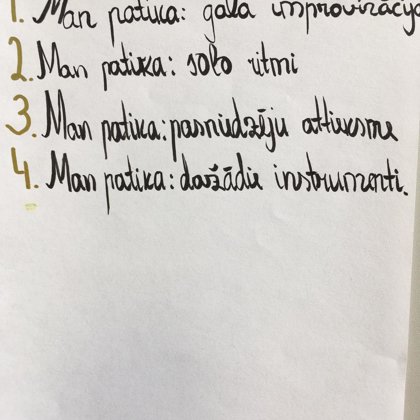 1. Man patika: gala improvizācija
2. Man patika: solo ritmi
3. Man patika: pasniedzēju attieksme
4. Man patika: dažādie instrumenti.